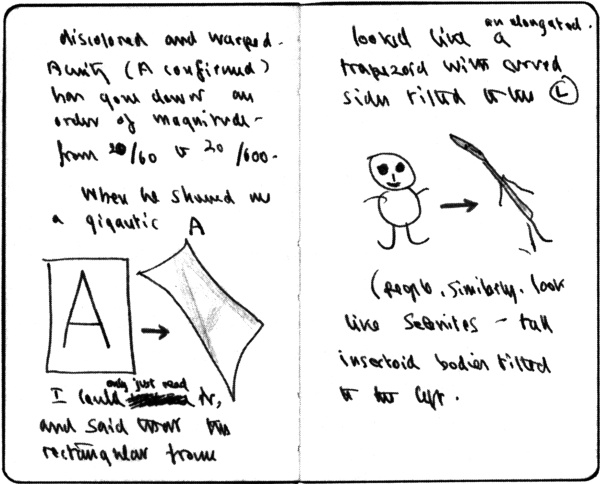 discolored and warped.
Acuity (A confirmed)
has gone down an
order of magnitude –
from 20/60 to 20/600.
When he showed me
a gigantic A
A
I could only just read it,
and said that the
rectangular frame
looked like an elongated
trapezoid with curved
sides tilted to the L
(People, similarly, look
like Selenites – tall
insectoid bodies tilted
to the left.